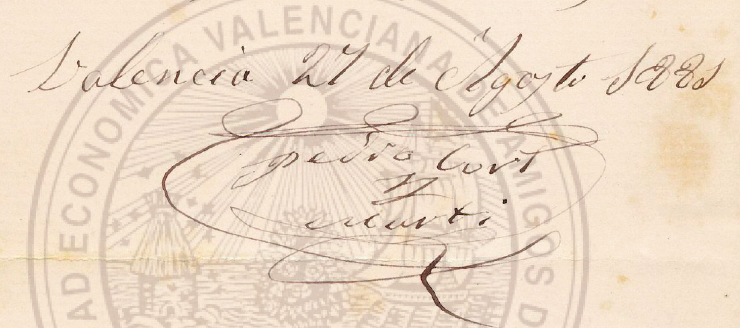 Valencia 27 de Agosto 1881
pedro Cort
y
marti
ECONOMICA VALENCIANA DE AMIGOS D